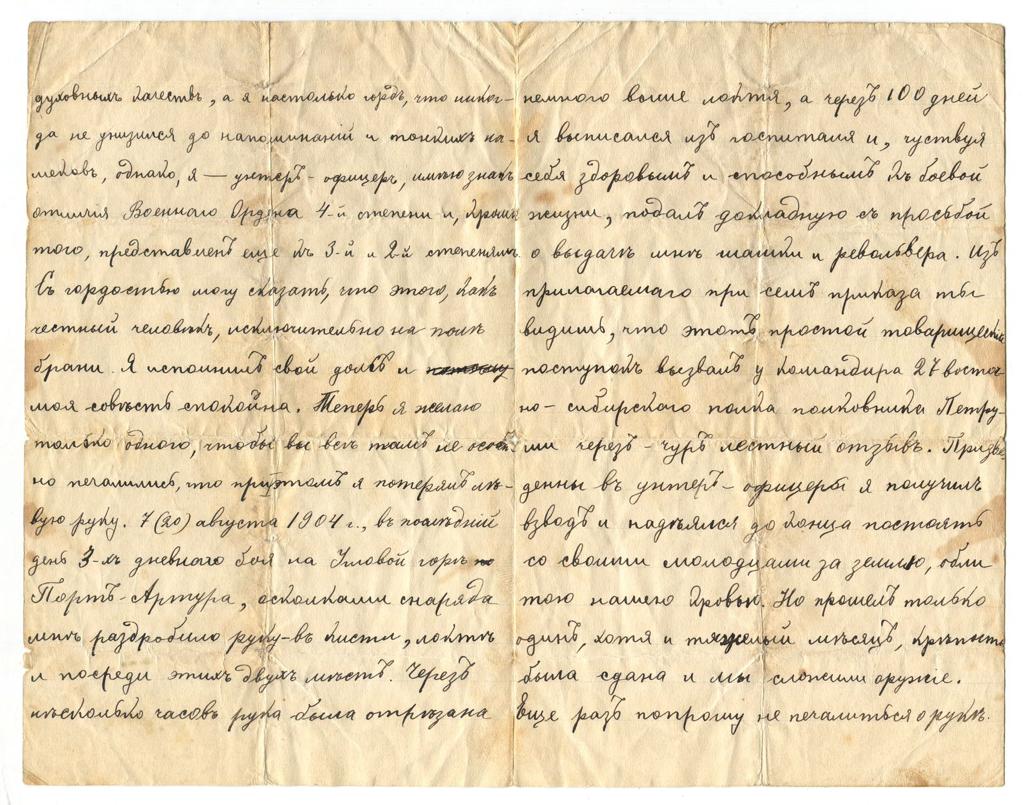 духовныхъ качествъ, а я настолько гордъ, что никог-
да не унизился до напоминаній и тонкихъ на-
мековъ, однако, я — унтеръ-офицеръ, имѣю знакъ
отличія Военнаго Ордена 4-й степени и, кромѣ
того, представленъ еще къ 3-й и 2-й степенямъ.
Съ гордостью могу сказать, что этого, какъ
честный человѣкъ, исключительно на полѣ
брани. Я исполнилъ свой долгъ и
моя совѣсть спокойна. Теперь я желаю
только одного, чтобы вы всѣ тамъ не особен-
но печалились, что при этомъ я потерялъ лѣ-
вую руку. 7 (20) августа 1904 г., въ послѣдній
день 3-хъ дневнаго боя на Угловой горѣ
Портъ-Артура, осколками снаряда
мнѣ раздробило руку-въ кисти, локтѣ
и посреди этихъ двухъ мѣстъ. Черезъ
нѣсколько часовъ рука была отрѣзана
немного выше локтя, а черезъ 100 дней
я выписался изъ госпиталя и, чуствуя
себя здоровымъ и способнымъ къ боевой
жизни, подалъ докладную съ просьбой
о выдачѣ мнѣ шашки и револьвера. Изъ
прилагаемаго при семъ приказа ты
видишь, что этотъ простой товарищескій
поступокъ вызвалъ у командира 27 восточ-
но-сибирского полка полковника Петру-
ши черезъ-чуръ лестный отзывъ. Произве-
денный въ унтеръ-офицеры я получилъ
взводъ и надѣялся до конца постоять
со своими молодцами за землю, обли
тою нашею кровью. Но прошелъ только
одинъ, хотя и тяжелый мѣсяцъ, крѣпость
была сдана и мы сложили оружіе.
Еще разъ попрошу не печалиться о рукѣ.